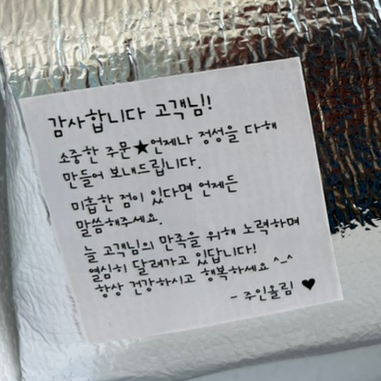 감사합니다 고객님!
소중한 주문★언제나 정성을 다해
만들어 보내드립니다.
미흡한 점이 있다면 언제든
말씀해주세요.
늘 고객님의 만족을 위해 노력하며
열심히 달려가고 있답니다!
항상 건강하시고 행복하세요 ^_^
- 주인올림 ♥